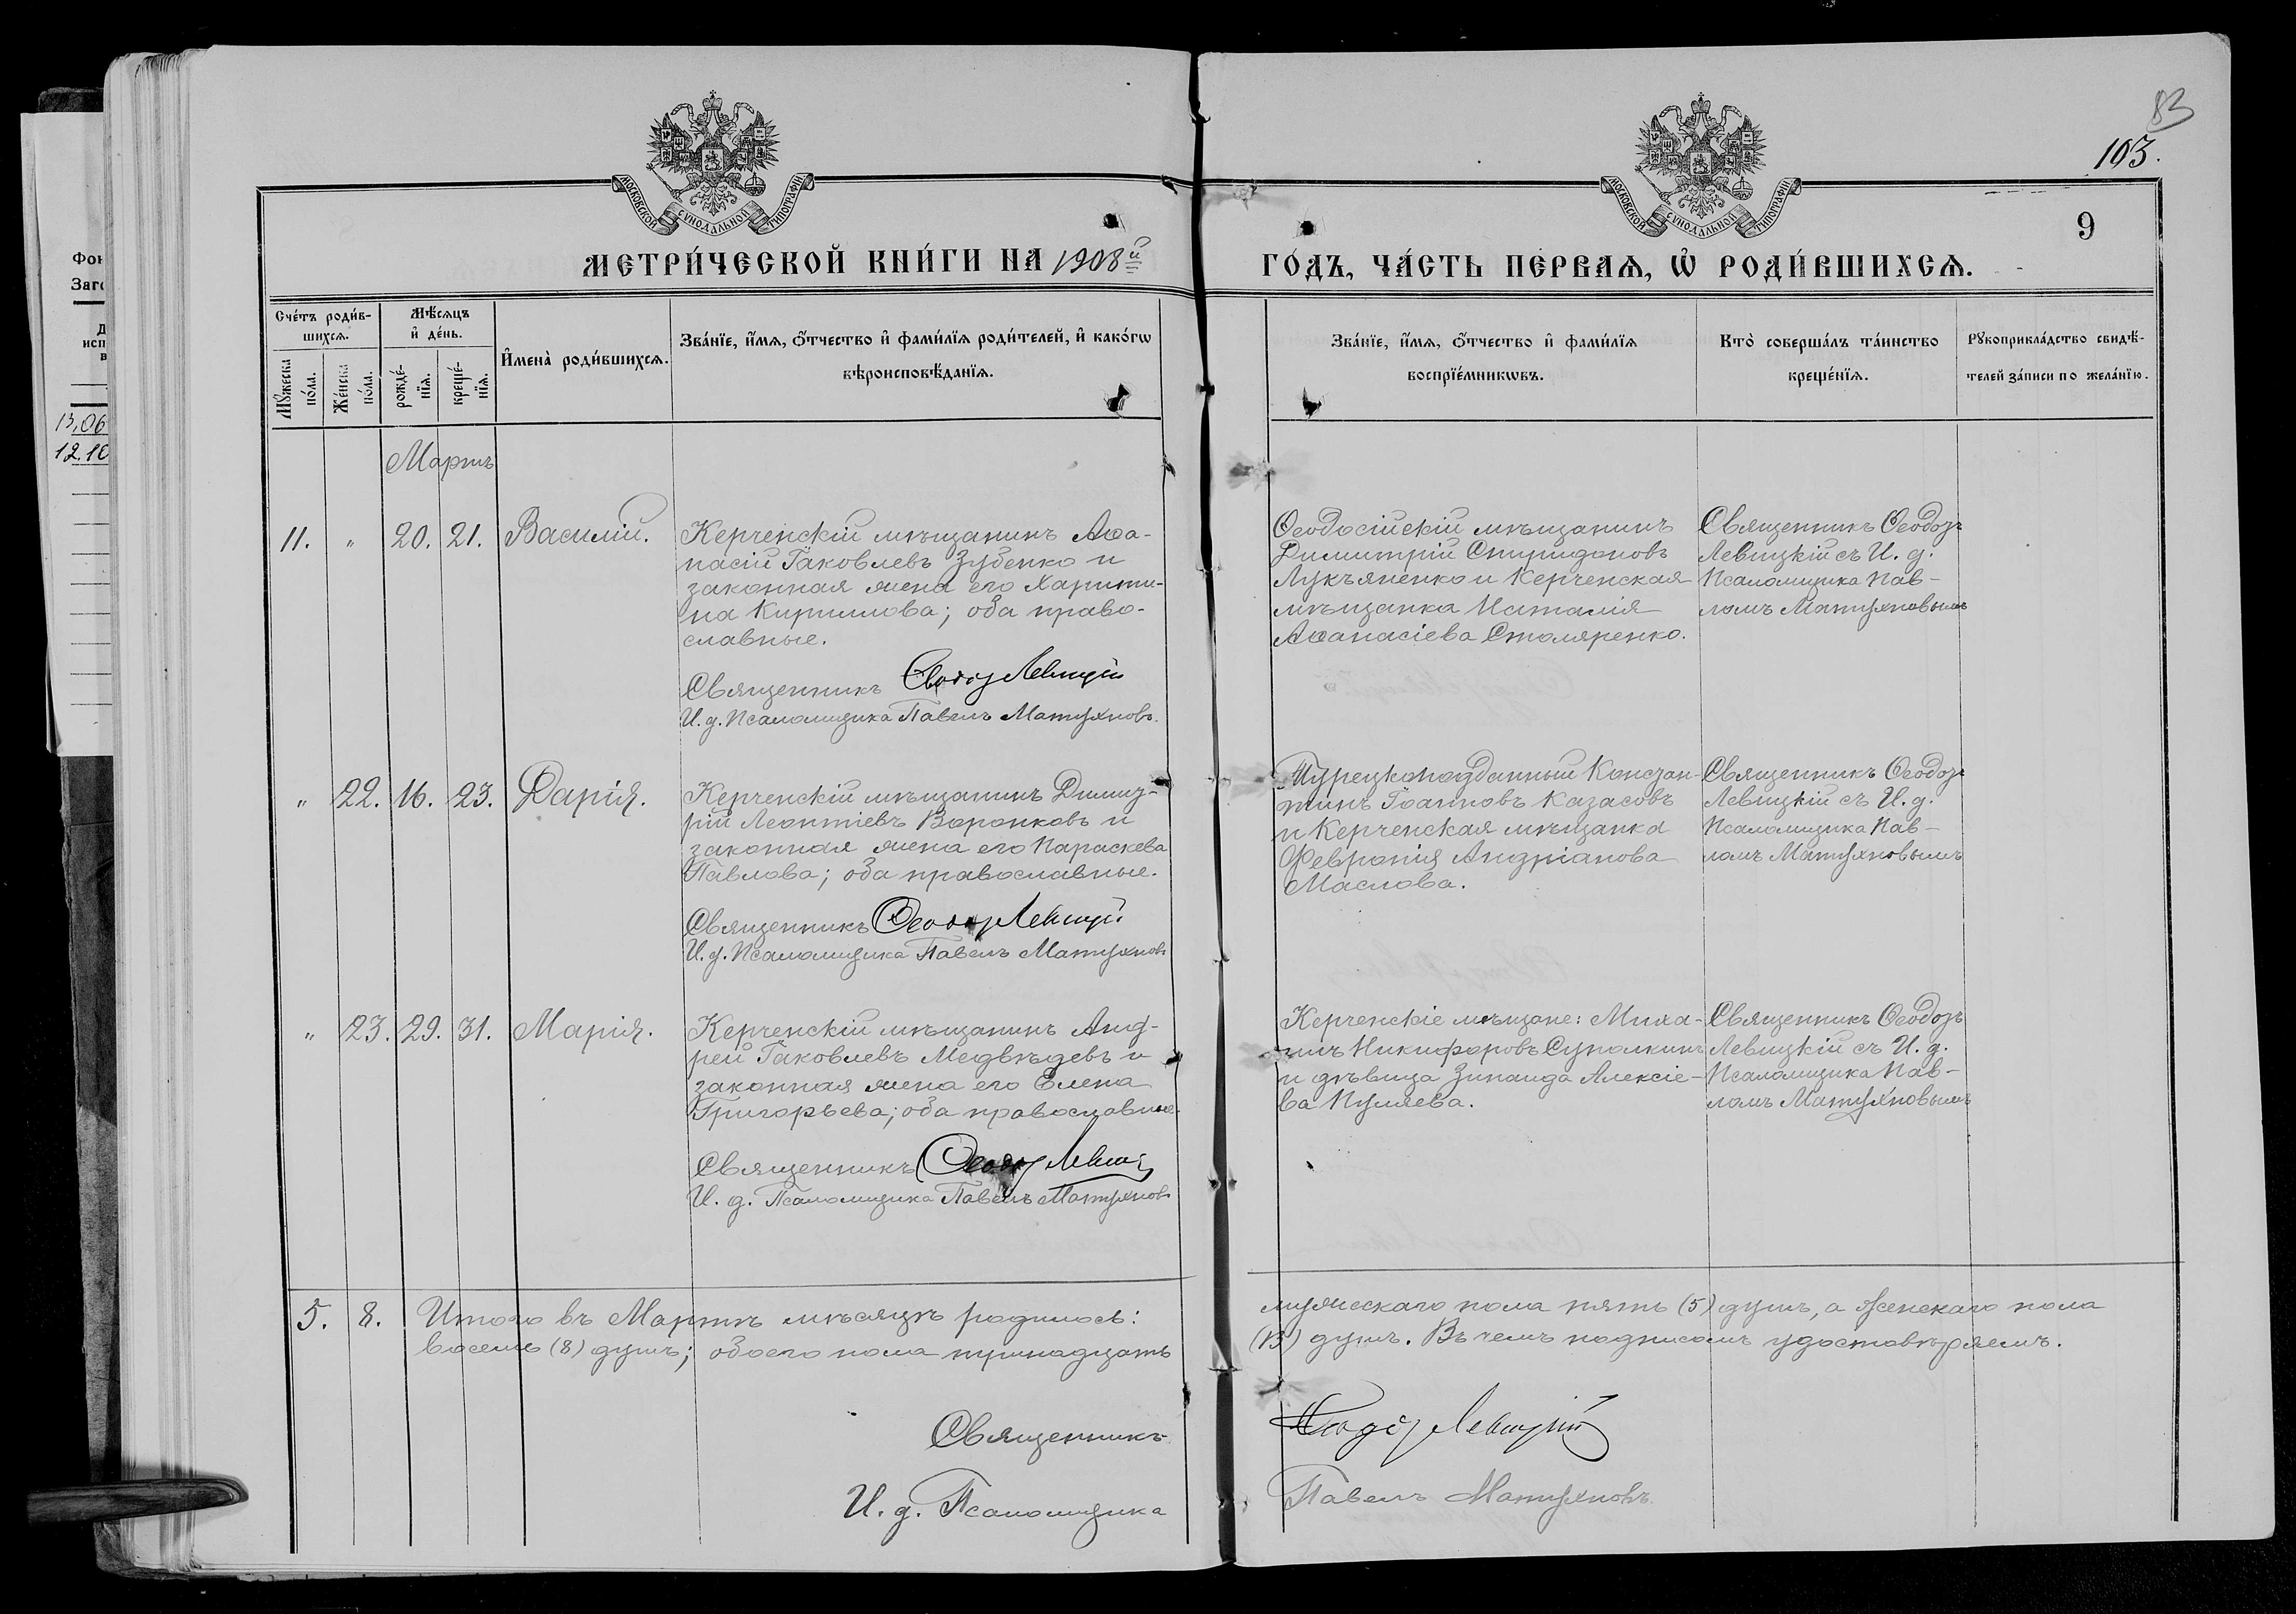 83
103.
МОСКОВСКОЙ СѴНОДАЛЬНОЙ ТИПОГРАФІИ
МОСКОВСКОЙ СѴНОДАЛЬНОЙ ТИПОГРАФІИ
9
МЕТРИ́ЧЕСКОЙ КНИ́ГИ НА 1908й
ГО́ДЪ, ЧА́СТЬ ПЕ́РВАѦ, Ѡ҆ РОДИ́ВШИХСѦ.
Сче́тъ роди́в-
шихсѧ.
Мѣ́сѧцъ
и҆ де́нь.
Мꙋ́жеска
по́ла.
Же́нска
по́ла.
рожде́-
нїѧ.
креще́-
нїѧ.
И҆мена̀ роди́вшихсѧ.
Зва́нїе, и҆́мѧ, ѻ҆́тчество и҆ фами́лїѧ роди́телей, и҆ како́гѡ
вѣроисповѣ́данїѧ.
Зва́нїе, и҆́мѧ, ѻ҆́тчество и҆ фами́лїѧ
воспрїе́мникѡвъ.
Кто̀ соверша́лъ та́инство
креще́нїѧ.
Рꙋкоприкла́дство свидѣ́-
телей за́писи по жела́нїю.
Фон
Заго
исп
13.06
12.10
Мартъ
11. " 20. 21. Василій.
Керченскій мѣщанинъ Аѳа-
насій Іаковлевъ Зубенко и
законная жена его Харити-
на Кириллова; оба право-
славные.
Священникъ Ѳеодоръ Левицкій
И. д. Псаломщика Павелъ Матухновъ.
Ѳеодосійскій мѣщанинъ
Димитрій Спиридоновъ
Лукъяненко и Керченская
мѣщанка Наталія
Аѳанасіева Столяренко.
Священникъ Ѳеодоръ
Левицкій съ И. д.
Псаломщика Пав-
ломъ Матухновымъ
" 22. 16. 23. Дарія.
Керченскій мѣщанинъ Димит-
рій Леонтіевъ Воронковъ и
законная жена его Параскева
Павлова; оба православные.
Священникъ Ѳеодоръ Левицкій
И. д. Псаломщика Павелъ Матухновъ
Турецкоподданный Констан-
тинъ Іоанновъ Казасовъ
и Керченская мѣщанка
Февронія Андріанова
Маслова.
Священникъ Ѳеодоръ
Левицкій съ И. д.
Псаломщика Пав-
ломъ Матухновымъ
" 23. 29. 31. Марія.
Керченскій мѣщанинъ Анд-
рей Іаковлевъ Медвѣдевъ и
законная жена его Елена
Григорьева; оба православные.
Священникъ Ѳеодоръ Левицкій
И. д. Псаломщика Павелъ Матухновъ
Керченскіе мѣщане: Миха-
илъ Никифоровъ Суполкинъ
и дѣвица Зинаида Алексіе-
ва Пуляева.
Священникъ Ѳеодоръ
Левицкій съ И. д.
Псаломщика Пав-
ломъ Матухновымъ
5. 8. Итого въ Мартѣ мѣсяцѣ родилось:
мужескаго пола пять (5) душъ, а женскаго пола
восемь (8) душъ; обоего пола тринадцать
(13) душъ. Въ чемъ подписомъ удостовѣряемъ.
Священникъ
Ѳеодоръ Левицкій
И. д. Псаломщика
Павелъ Матухновъ.